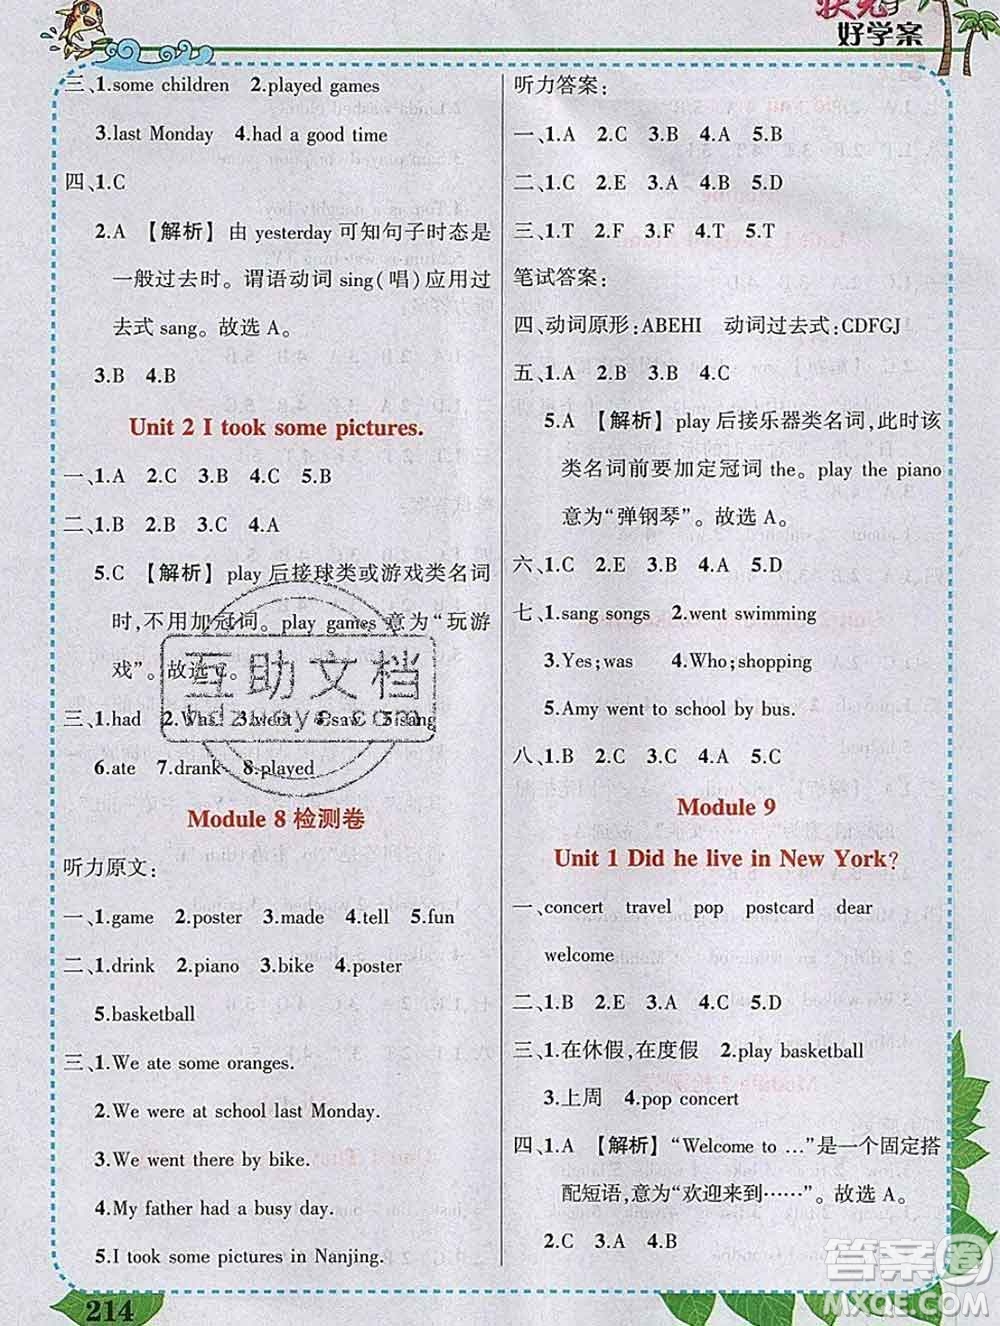 状元
好学案
三、1.some children 2.played games
3.last Monday 4.had a good time
四、1.C
2.A 【解析】由 yesterday 可知句子时态是
一般过去时。谓语动词 sing(唱)应用过
去式 sang。故选 A。
3.B 4.B
Unit 2 I took some pictures.
一、1.A 2.C 3.B 4.C 5.B
二、1.B 2.B 3.C 4.A
5.C 【解析】play 后接球类或游戏类名词
时,不用加冠词。play games 意为“玩游
戏”。故选 C。
三、1.had 2.Was 3.went 4.saw 5.sang
6.ate 7.drank 8.played
Module 8 检测卷
听力原文:
一、1.game 2.poster 3.made 4.tell 5.fun
二、1.drink 2.piano 3.bike 4.poster
5.basketball
三、1.We ate some oranges.
2.We were at school last Monday.
3.We went there by bike.
4.My father had a busy day.
5.I took some pictures in Nanjing.
214
听力答案:
一、1.A 2.C 3.B 4.A 5.B
二、1.C 2.E 3.A 4.B 5.D
三、1.T 2.F 3.F 4.T 5.T
笔试答案:
四、动词原形:ABEHI 动词过去式:CDFGJ
五、1.A 2.B 3.B 4.C
5.A 【解析】play 后接乐器类名词,此时该
类名词前要加定冠词 the。play the piano
意为“弹钢琴”。故选 A。
六、1.C 2.E 3.B 4.D 5.A
七、1.sang songs 2.went swimming
3.Yes;was 4.Who;shopping
5.Amy went to school by bus.
八、1.B 2.C 3.A 4.A 5.C
Module 9
Unit 1 Did he live in New York?
一、concert travel pop postcard dear
welcome
二、1.B 2.A 3.E 4.C 5.D
三、1.在休假,在度假 2.play basketball
3.上周 4.pop concert
四、1.A 【解析】“Welcome to …”是一个固定搭
配短语,意为“欢迎来到……”。故选 A。
2.C 3.A 4.B 5.C
互助文档
hdzuoye.com
答案圈
MXQE.COM